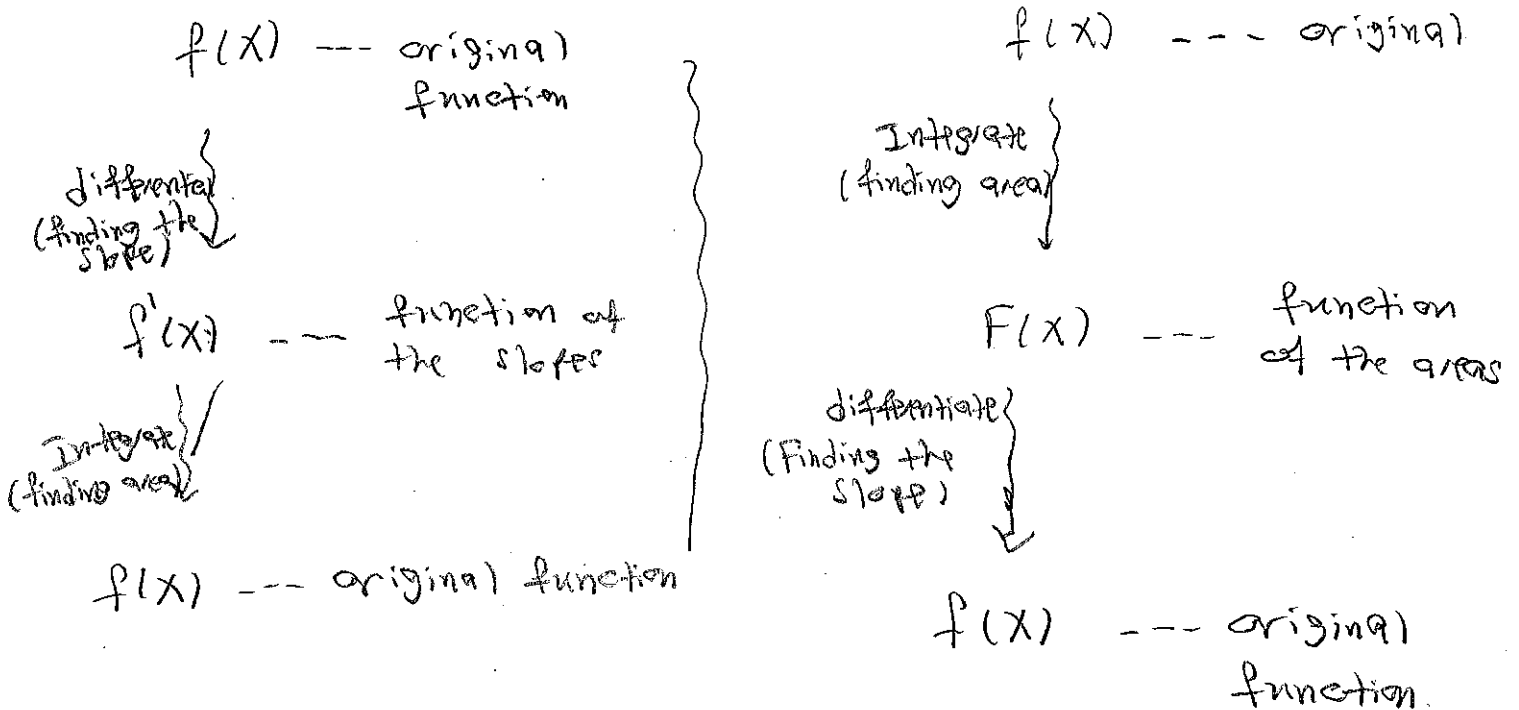 f(x) --- original
function
differential
(finding the
slope)
f'(x) --- function of
the slopes
Integrate
(finding area)
f(x) --- original function
f(x) --- original
Integrate
(finding area)
F(x) --- function
of the areas
differentiate
(Finding the
slope)
f(x) --- original
function.